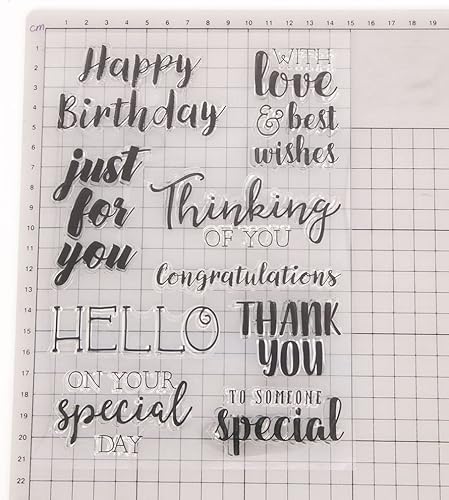 cm
1 2 3 4 5 6 7 8 9 10 11 12 13 14 15 16 17 18 19
1
2
3
4
5
6
7
8
9
10
11
12
13
14
15
16
17
18
19
20
21
22
Happy
Birthday
WITH
love
& best
wishes
just
for
you
Thinking
OF YOU
Congratulations
HELLO
THANK
YOU
ON YOUR
special
DAY
TO SOMEONE
special